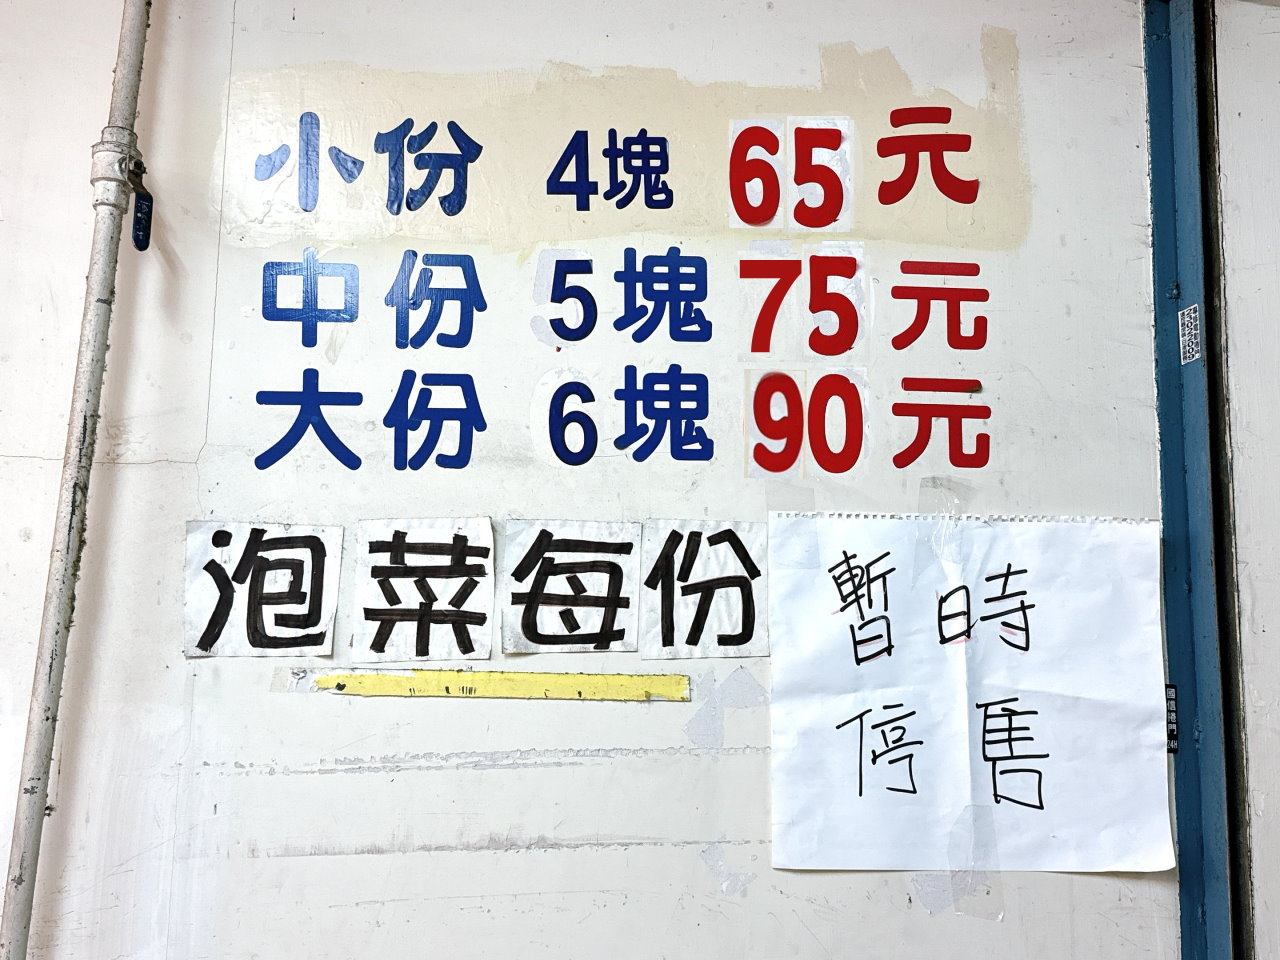 小份 4塊 65元
中份 5塊 75元
大份 6塊 90元
泡菜每份
暫時
停售
國信捲門
24H